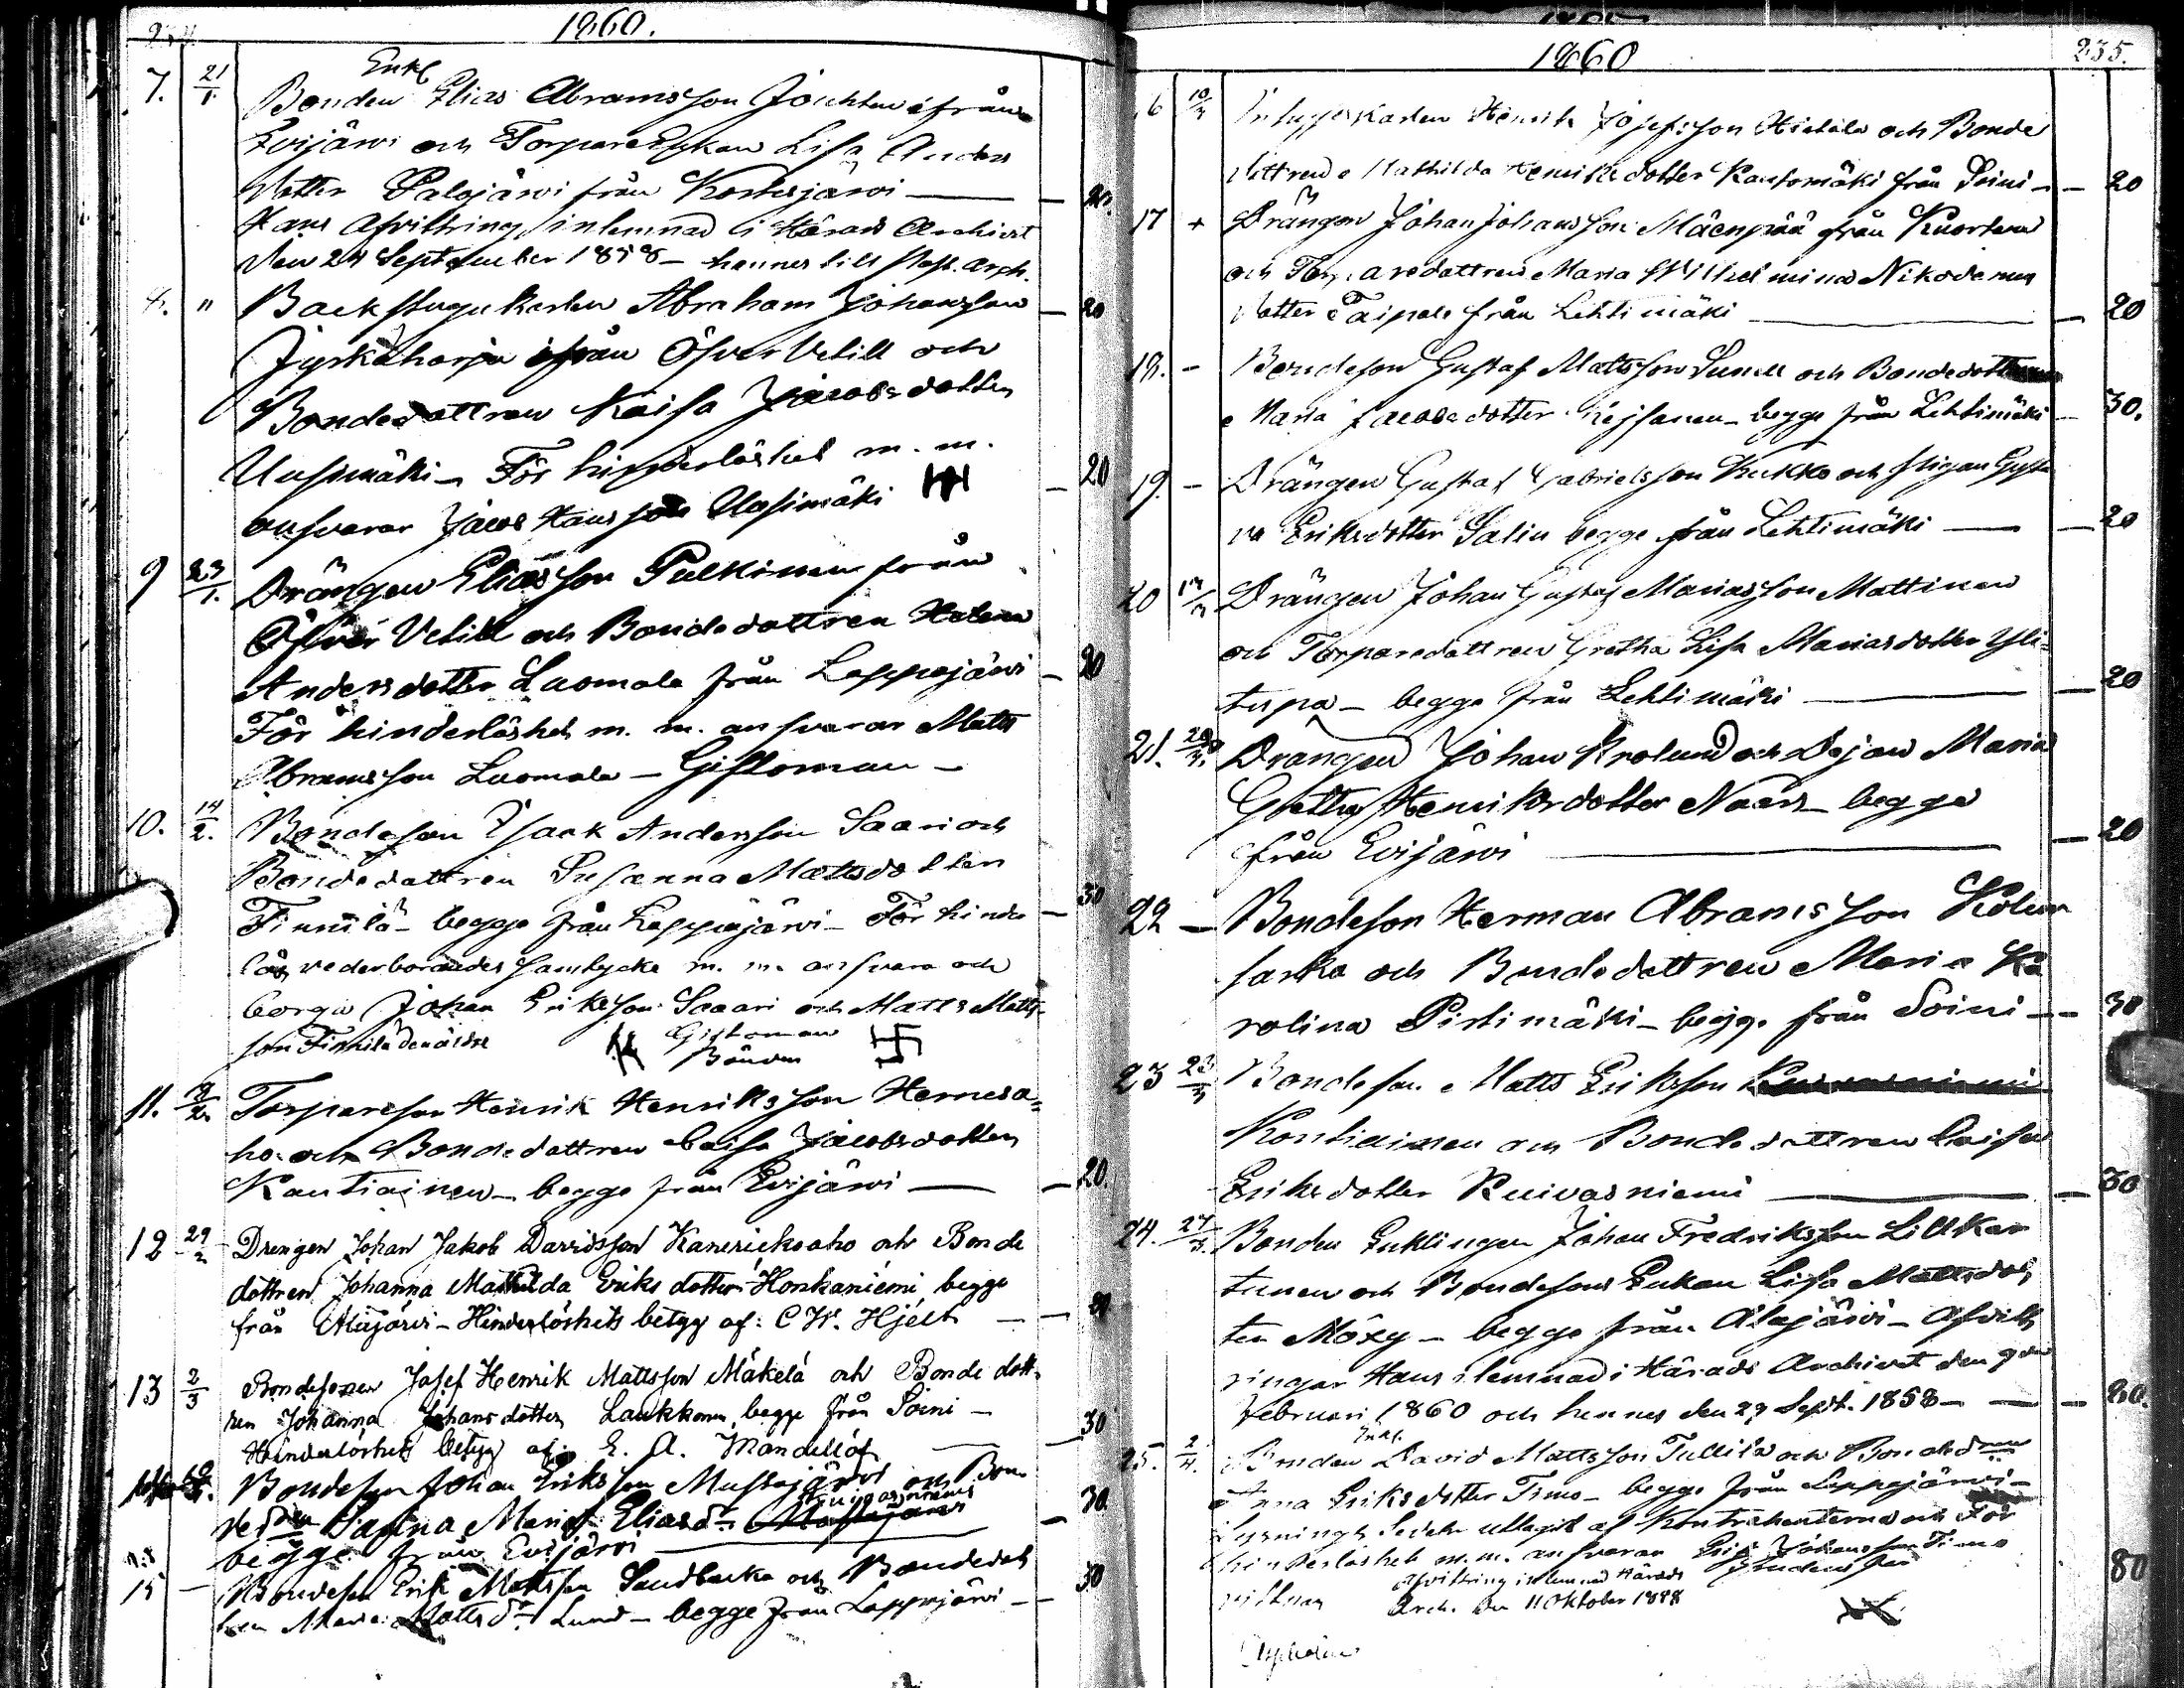 1860.
7. 21/1. Enkl
Bonden Elias Abramsson Jouhten ifrån
Evijärvi och Torpare Enkan Lisa Anders
dotter Palojärvi från Kortesjärvi — — 20.
Hans afvittring inlemnad i Härads Archivet
den 24 September 1858 — hennes till
8. " Backstugukarlen Abraham Johansson — 20
Jyrkäharju ifrån Öfver Vetill och
Bondedottren Kaisa Jacobsdotter
Uusimäki — För hinderlöshet m. m. — 20
ansvarar Jacob Hansson Uusimäki
9 23/1. Drängen Eliasson Pulkinen från
Öfver Vetill och Bondedottren Helena
Andersdotter Luomala från Lappajärvi — 20
För hinderlöshet m. m. ansvarar Matts
Abramsson Luomala — Giftoman —
10. 14/2. Bondeson Isaak Andersson Saari och
Bondedottren Susanna Mattsdotter
Finnilä — begge från Lappajärvi — För hinder — 30
lös vederbörandes samtycke m. m. ansvara och
borga Johan Eriksson Saari och Matts Matts
son Finnilä den äldre Giftoman
Bönder
11. Torpareson Henrik Henriksson Hernesa=
ho och Bondedottren Caisa Jacobsdotter
Kantiainen — begge från Evijärvi — — 20.
12 29/2 Drengen Johan Jakob Davidsson och Bonde
dottren Johanna Mathilda Eriks dotter Honkaniemi begge
från Alajärvi — Hinderlöshets betyg af: C W. Hjelt — — 20
13 2/3 Bondesonen Josef Henrik Mattsson Mäkelä och Bonde dott-
ren Johanna Johans dotter Laukkonen begge från Soini —
Hinderlöshets betyg af E. A. Mandellöf — — 30
Bondeson Johan Eriksson Mustajärvi och Bon
de Maria Eliasdr — 30.
begge från Evijärvi
15 — Bondeson Erik Mattsson Sandbacka och Bondedot
tren Maria Mattsdr Lund — begge från Lappajärvi — — 30
1860
235.
16 10/3 Inhyseskarlen Henrik Josefsson Hietala och Bonde
dottren Mathilda Henriksdotter Kansomäki från Soini — — 20
17 + Drängen Johan Johansson Mäenpää från Kuortane
och Torparedottren Maria Wilhelmina Nikodemus
dotter Taipale från Lehtimäki — — 20
18. — Bondeson Gustaf Mattsson och Bondedottren
Maria Jacobsdotter — begge från Lehtimäki — 30.
19. — Drängen Gustaf Gabrielsson Kukko och Pigan Gusta
va Eriksdotter Salin begge från Lehtimäki — — 20
20 17/3 Drängen Johan Gustaf Mariasson Mattinen
och Torparedottren Gretha Lisa Mariasdotter Yli=
tupa — begge från Lehtimäki — — 20
21. Drängen Johan Krolund och Pigan Maria
Gretha Henriksdotter Naars — begge
från Evijärvi — — 20
22 — Bondeson Herman Abramsson
och Bondedottren Maria Ka
rolina Pirtimäki — begge från Soini — — 30
23 23/3 Bondeson Matts Eriksson
Kontiainen och Bondedottren Caisa
Eriksdotter Kuivasniemi — — 30
24. 27/3. Bonden Enklingen Johan Fredriksson
och Bondesons Enkan Lisa Mattsdot
ter Möxy — begge från Alajärvi — Afvitt
ringar Hans i lemnad i Härads Archivet den 9de
Februari 1860 och hennes den 29 Sept. 1858 — — 20.
25. 2/4. Enkl.
Bonden David Mattsson Tullila och
Anna Eriksdotter Timo — begge från Lappajärvi —
Lysnings Sedeln uttagit af Kontrahenterna och För
hinderlöshet m. m. ansvarar Erik Johansson Timo
Afvittring inlemnad Härads
Arch. den 11 Oktober 1848
80